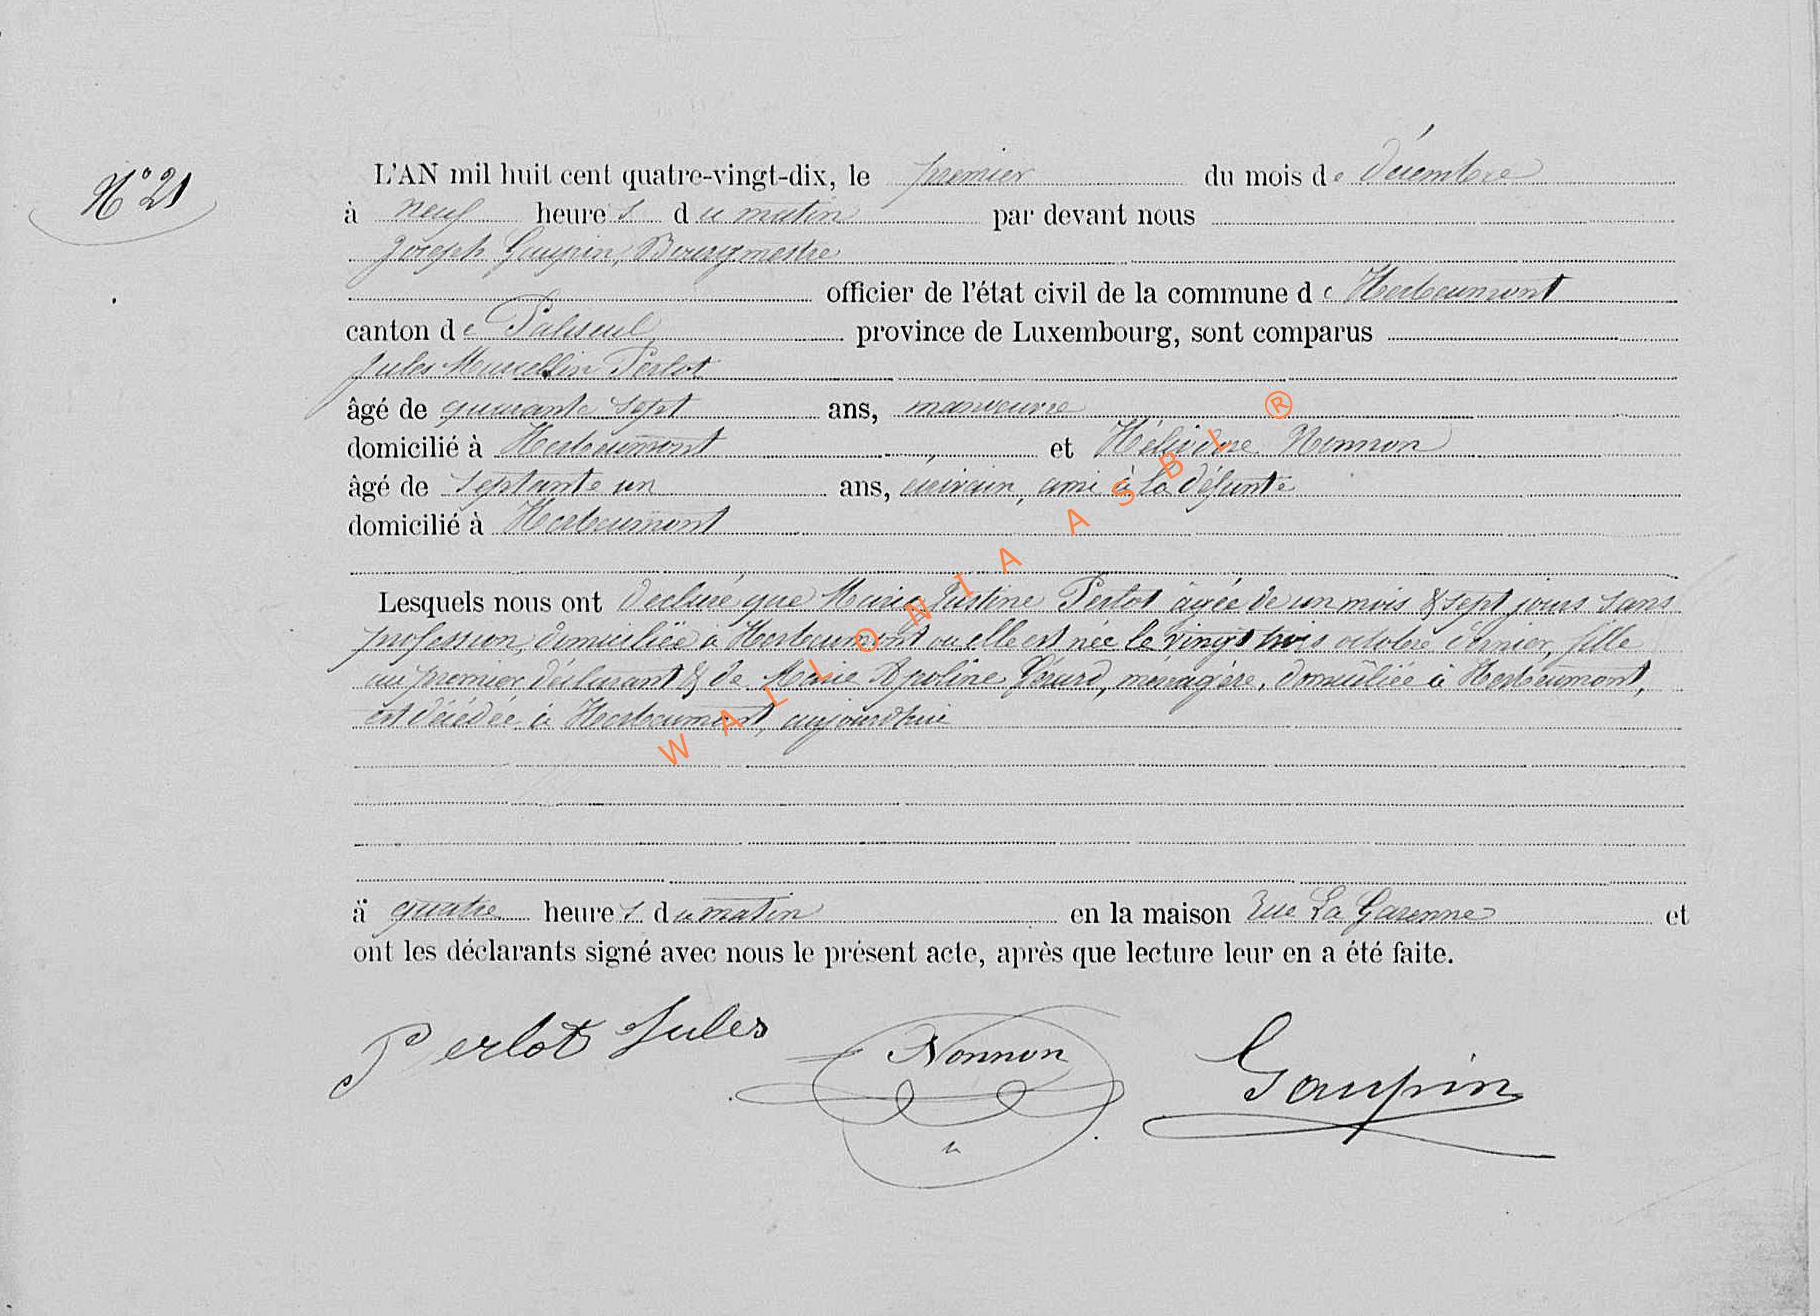 N° 21
L'AN mil huit cent quatre-vingt-dix, le premier du mois de Décembre
à neuf heures du matin par devant nous
Joseph Gaupin, Bourgmestre
officier de l'état civil de la commune de Herbeumont
canton de Paliseul province de Luxembourg, sont comparus
Jules Marcellin Perlot
âgé de quarante sept ans, manœuvre
domicilié à Herbeumont et Héliodore Nonnon
âgé de septante un ans, écrivain, ami à la défunte
domicilié à Herbeumont
Lesquels nous ont déclaré que Marie Justine Perlot âgée de un mois & sept jours sans
profession, domiciliée à Herbeumont ou elle est née le vingt trois octobre dernier, fille
au premier déclarant & de Marie Apoline Gérard, ménagère, domiciliée à Herbeumont,
est décédée à Herbeumont, aujourd'hui
à quatre heures du matin en la maison rue La Garenne et
ont les déclarants signé avec nous le présent acte, après que lecture leur en a été faite.
Perlot Jules Nonnon Gaupin
WALLONIA ASBL ®